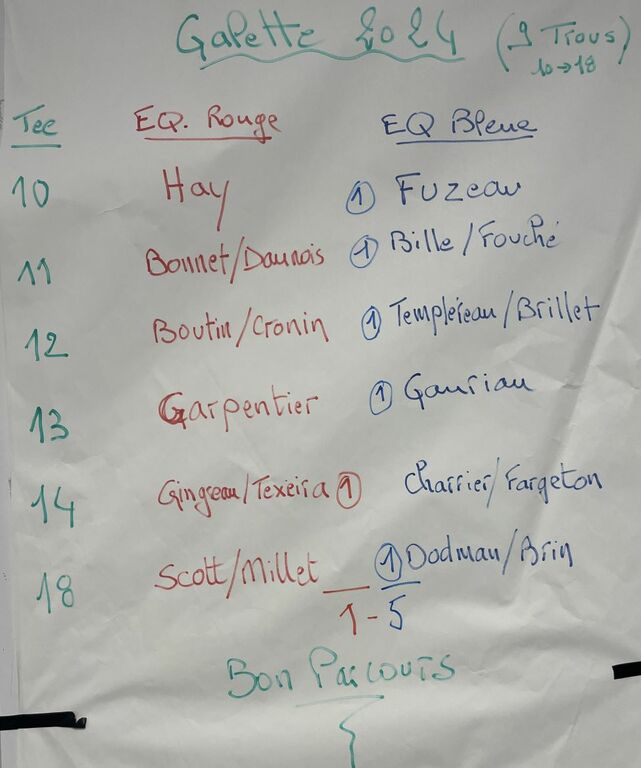 Galette 2024 (9 Trous)
10→18
Tee EQ. Rouge EQ Bleue
10 Hay ① Fuzeau
11 Bonnet/Daunois ① Bille/Fouché
12 Boutin/Cronin ① Templéreau/Brillet
13 Carpentier ① Gauriau
14 Gingreau/Texeira ① Charrier/Fargeton
18 Scott/Millet ① Dodman/Brin
1-5
Bon Parcours